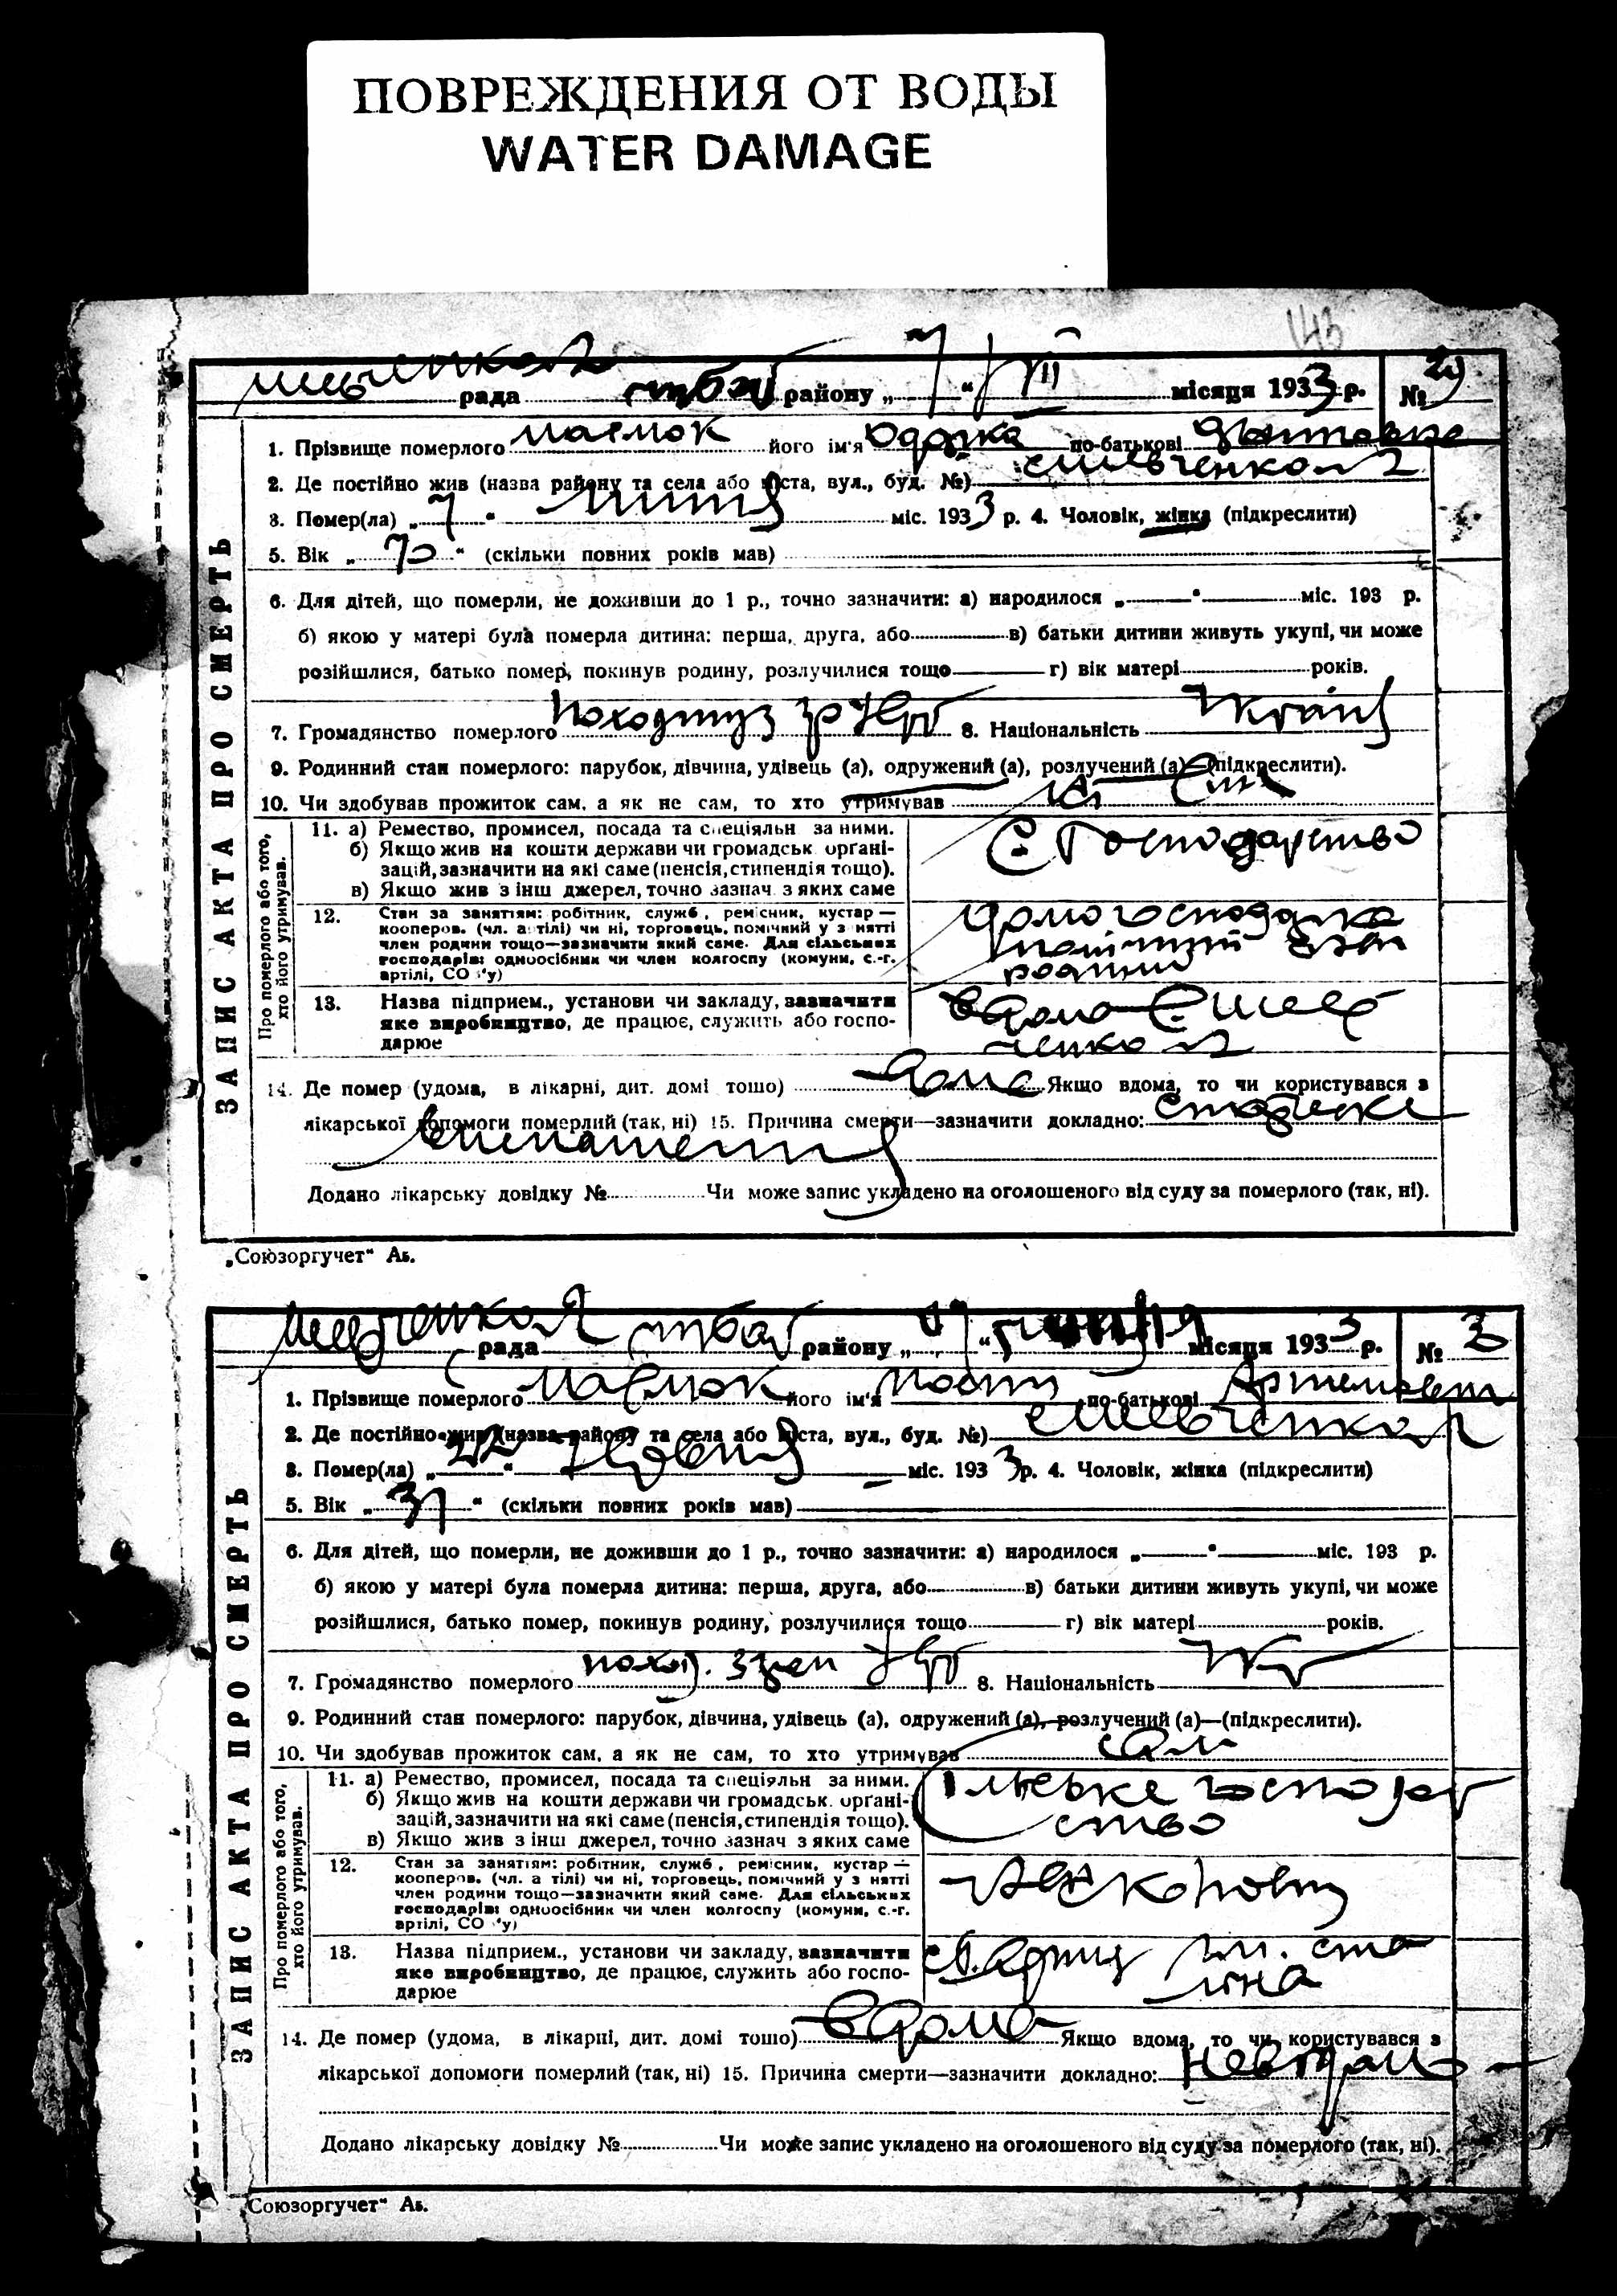 ПОВРЕЖДЕНИЯ ОТ ВОДЫ
WATER DAMAGE
143
рада району „ 7 “ VII місяця 1933 р. №
ЗАПИС АКТА ПРО СМЕРТЬ
1. Прізвище померлого маємок його ім'я по-батькові
2. Де постійно жив (назва району та села або міста, вул., буд. №)
3. Помер(ла) „ 7 “ липня міс. 1933 р. 4. Чоловік, жінка (підкреслити)
5. Вік „ 70 “ (скільки повних років мав)
6. Для дітей, що померли, не доживши до 1 р., точно зазначити: а) народилося „ “ міс. 193 р.
б) якою у матері була померла дитина: перша, друга, або в) батьки дитини живуть укупі, чи може
розійшлися, батько помер, покинув родину, розлучилися тощо г) вік матері років.
7. Громадянство померлого 8. Національність
9. Родинний стан померлого: парубок, дівчина, удівець (а), одружений (а), розлучений (а)—(підкреслити).
10. Чи здобував прожиток сам, а як не сам, то хто утримував син
Про померлого або того, хто його утримував.
11. а) Ремество, промисел, посада та спеціяльн за ними.
б) Якщо жив на кошти держави чи громадськ. органі-
зацій, зазначити на які саме (пенсія, стипендія тощо).
в) Якщо жив з інш джерел, точно зазнач з яких саме
С. Господарство
12. Стан за заняттям: робітник, служб., ремісник, кустар—
кооперов. (чл. артілі) чи ні, торговець, помічний у занятті
член родини тощо—зазначити який саме. Для сільських
господарів: одноосібник чи член колгоспу (комуни, с.-г.
артілі, СО у)
домогосподарка
родини
13. Назва підприєм., установи чи закладу, зазначити
яке виробництво, де працює, служить або госпо-
дарює
14. Де помер (удома, в лікарні, дит. домі тощо) дома Якщо вдома, то чи користувався з
лікарської допомоги померлий (так, ні) 15. Причина смерти—зазначити докладно:
Додано лікарську довідку № Чи може запис укладено на оголошеного від суду за померлого (так, ні).
„Союзоргучет“ Аь.
рада району „ “ місяця 1933 р. № 3
ЗАПИС АКТА ПРО СМЕРТЬ
1. Прізвище померлого маємок його ім'я по-батькові Артемович
2. Де постійно жив (назва району та села або міста, вул., буд. №)
3. Помер(ла) „ 22 “ червня міс. 1933 р. 4. Чоловік, жінка (підкреслити)
5. Вік „ 37 “ (скільки повних років мав)
6. Для дітей, що померли, не доживши до 1 р., точно зазначити: а) народилося „ “ міс. 193 р.
б) якою у матері була померла дитина: перша, друга, або в) батьки дитини живуть укупі, чи може
розійшлися, батько помер, покинув родину, розлучилися тощо г) вік матері років.
7. Громадянство померлого 8. Національність Укр
9. Родинний стан померлого: парубок, дівчина, удівець (а), одружений (а), розлучений (а)—(підкреслити).
10. Чи здобував прожиток сам, а як не сам, то хто утримував сам
Про померлого або того, хто його утримував.
11. а) Ремество, промисел, посада та спеціяльн за ними.
б) Якщо жив на кошти держави чи громадськ. органі-
зацій, зазначити на які саме (пенсія, стипендія тощо).
в) Якщо жив з інш джерел, точно зазнач з яких саме
12. Стан за заняттям: робітник, служб., ремісник, кустар—
кооперов. (чл. а тілі) чи ні, торговець, помічний у занятті
член родини тощо—зазначити який саме. Для сільських
господарів: одноосібник чи член колгоспу (комуни, с.-г.
артілі, СО у)
13. Назва підприєм., установи чи закладу, зазначити
яке виробництво, де працює, служить або госпо-
дарює
ім. Ста
ліна
14. Де помер (удома, в лікарні, дит. домі тощо) вдома Якщо вдома, то чи користувався з
лікарської допомоги померлий (так, ні) 15. Причина смерти—зазначити докладно:
Додано лікарську довідку № Чи може запис укладено на оголошеного від суду за померлого (так, ні).
Союзоргучет“ Аь.